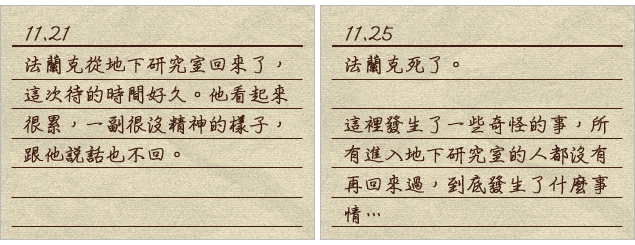 11.21
法蘭克從地下研究室回來了，
這次待的時間好久。他看起來
很累，一副很沒精神的樣子，
跟他說話也不回。
11.25
法蘭克死了。
這裡發生了一些奇怪的事，所
有進入地下研究室的人都沒有
再回來過，到底發生了什麼事
情…